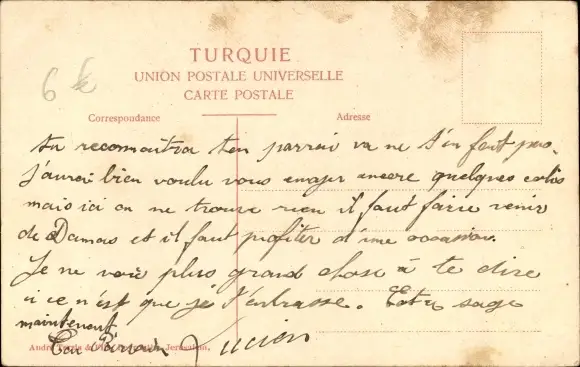 TURQUIE
UNION POSTALE UNIVERSELLE
CARTE POSTALE
6 €
Correspondance Adresse
tu reconnaitra ton parrain va ne t'en fait pas.
j'aurai bien voulu vous envoyer encore quelques colis
mais ici on ne trouve rien il faut faire venir
de Damas et il faut profiter d'une occasion.
Je ne voie plus grand chose à te dire
si ce n'est que je t'enbrasse. Est tu sage
maintenant
Ton Parrain Lucien
André Jerusalem.